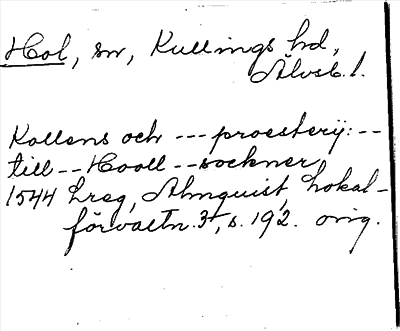 Hol, sn, Kullings hd,
Älvsb. l.
Kollens och --- proesterij: --
till -- Hooll -- sockner,
1544 Lreg, Almquist, Lokal-
förvaltn. 3¹, s. 192. orig.